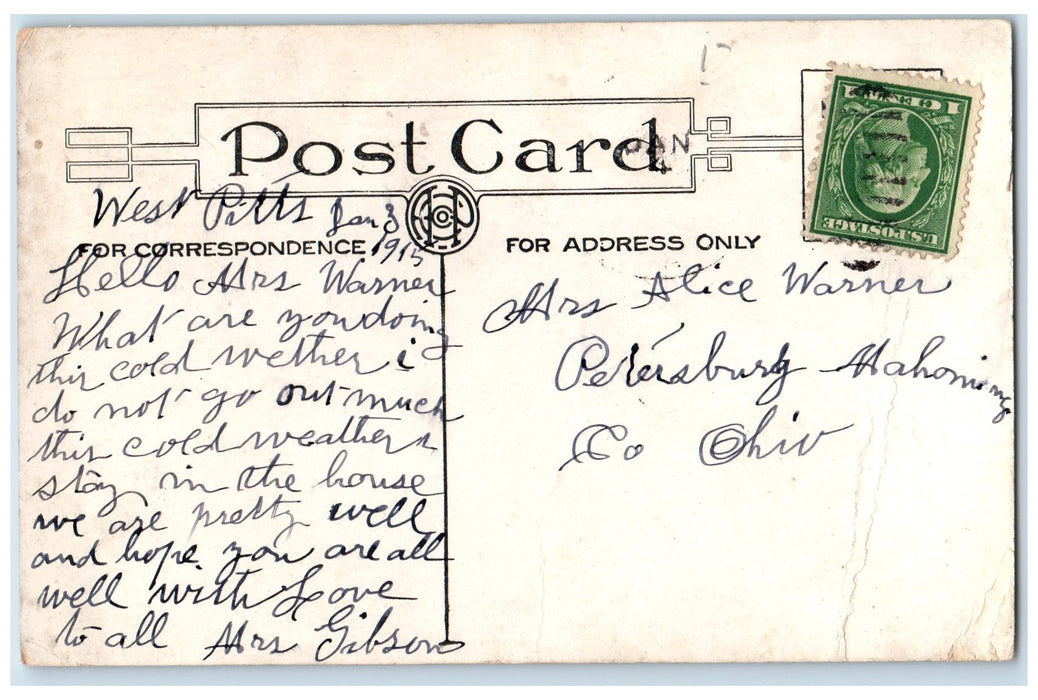 Post Card
JAN
4
1 CENT 1
U.S. POSTAGE
West Pitts Jan 3
1915
FOR CORRESPONDENCE
Hello Mrs Warner
What are you doing
this cold wether i
do not go out much
this cold weather
stay in the house
we are pretty well
and hope you are all
well with Love
to all Mrs Gibson
FOR ADDRESS ONLY
Mrs Alice Warner
Petersburg Mahoning
Co Ohio